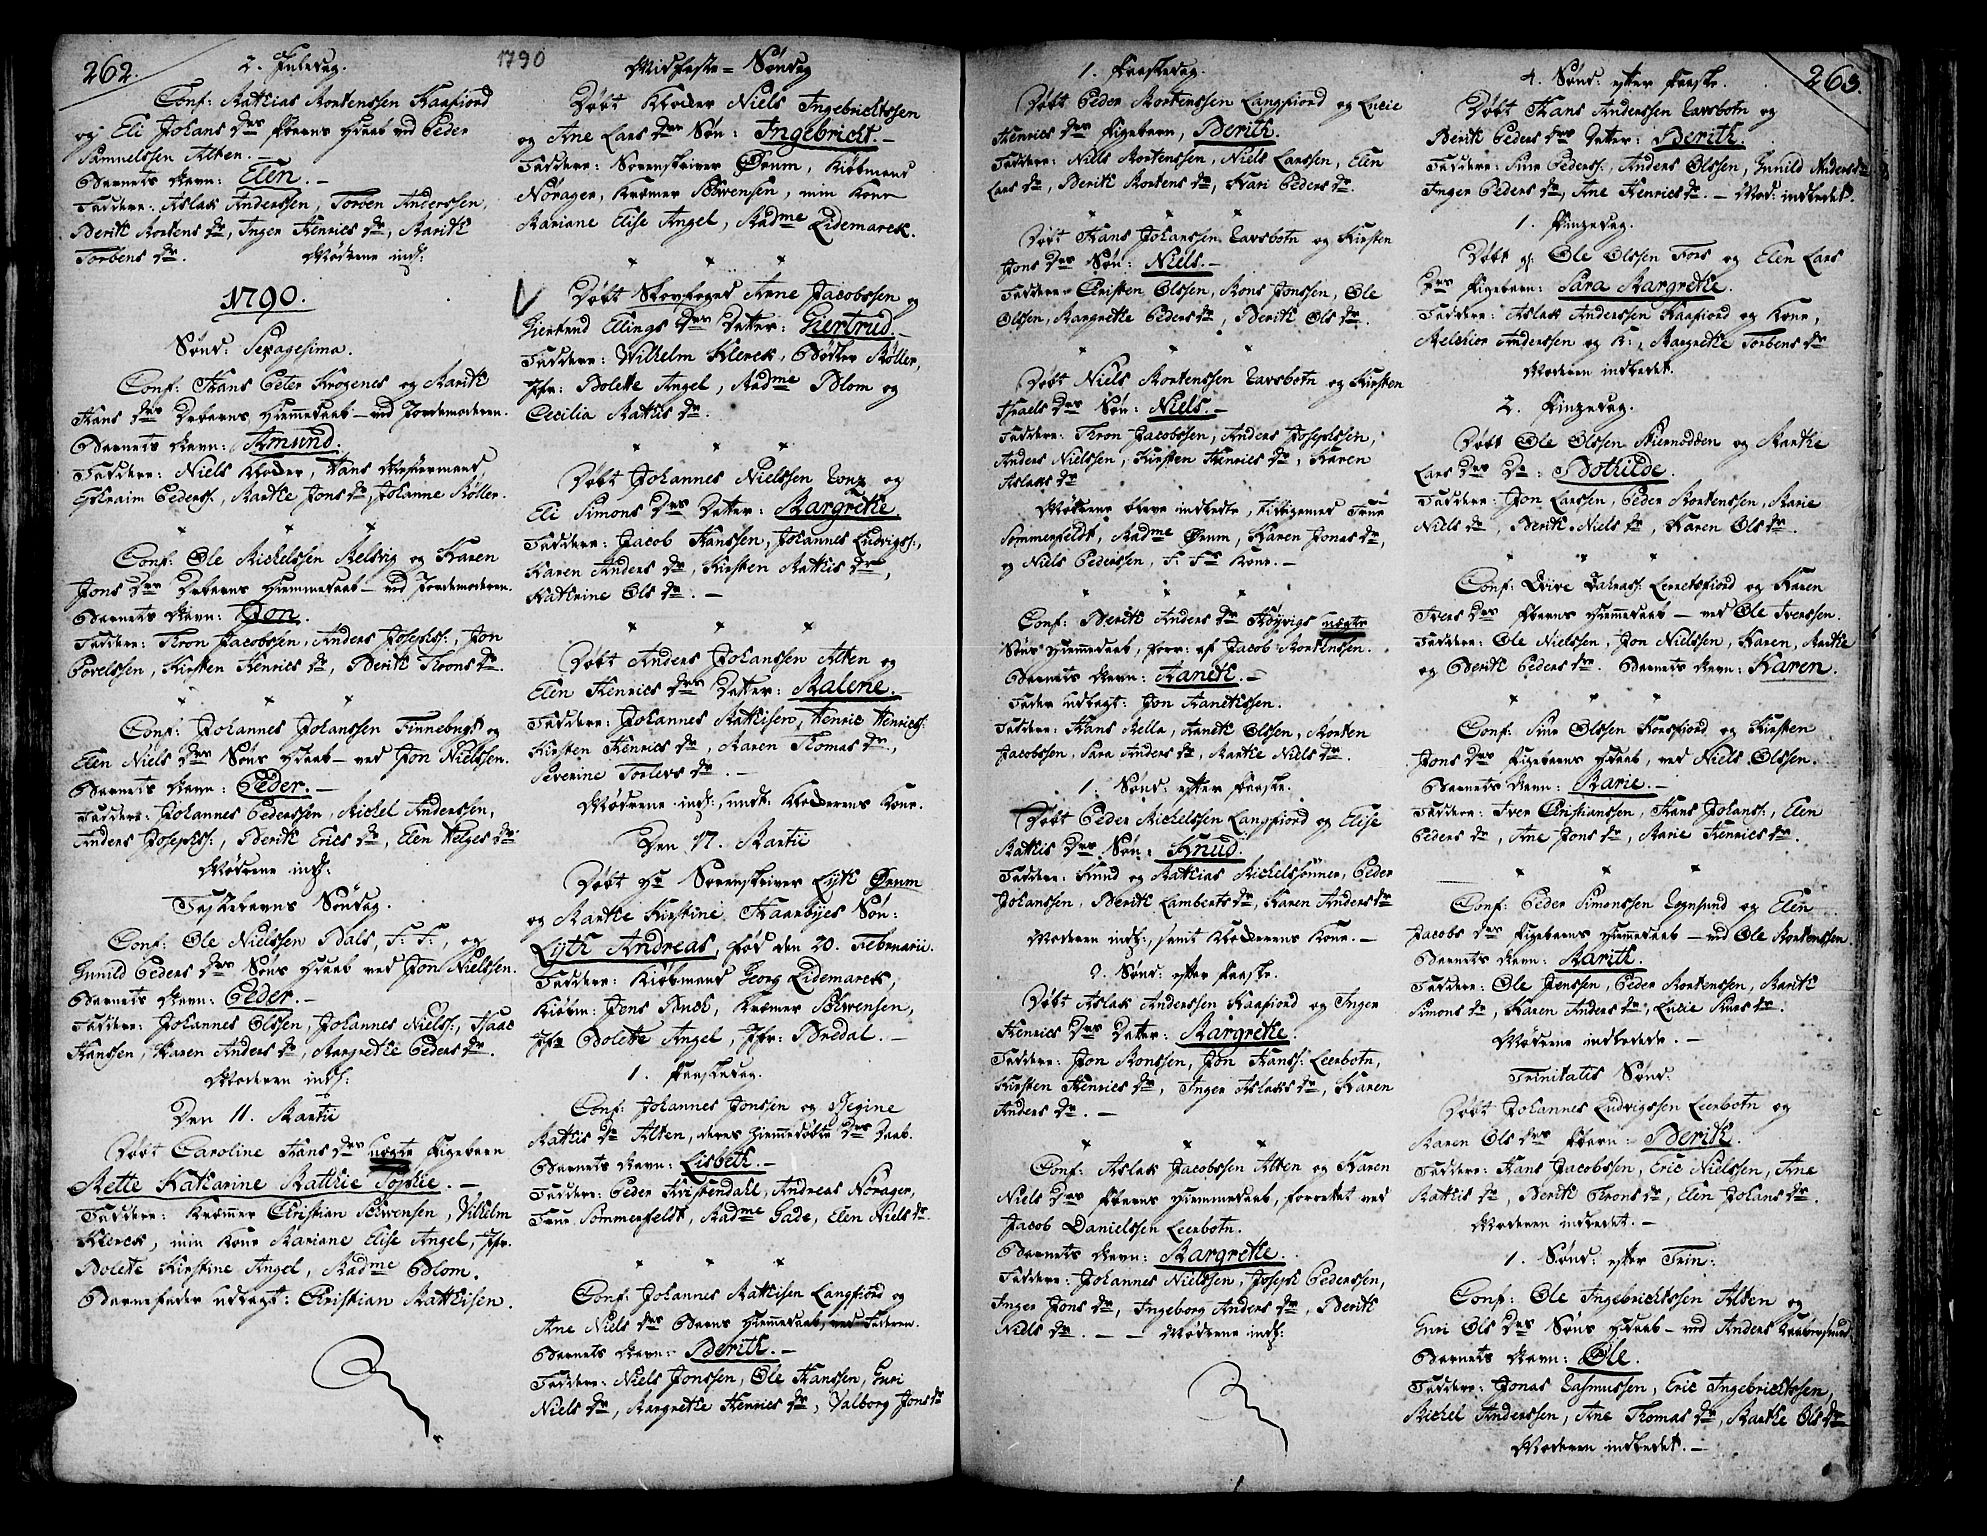 262.
2. Juledag.
Conf: Mathias Mortenssen Kaafiord
og Eli Johans Drs Pbarns Hdaab ved Peder
Samuelssen Alten.
Barnets Navn: Elen. -
Faddere: Aslak Anderssen, Torben Anderssen,
Berith Mortens dr, Inger Henrics dr, Marith
Torbens dr. Mødrene indl:
1790.
Sønd: Sexagesima.
Conf: Hans Peter Krogenes og Marith
Hans Drs Pebarns Hiemmedaab - ved Jordemoderen.
Barnets Navn: Amund.
Faddere: Niels Kloder, Hans Mustermand,
Ephraim Pederss:, Marthe Jons dr, Johanne Møller.
Conf: Ole Michelssen Melsvig og Karen
Jons Drs Drebarns Hiemmedaab - ved Jordemoderen.
Barnets Navn: Jon.
Faddere: Thron Jacobssen, Anders Josephss:, Jon
Povelssen, Kirsten Henrics dr, Berith Throns dr.
Conf: Johannes Johanssen Finnebugt og
Elen Niels Drs Søns Hdaab - ved Jon Nielssen.
Barnets Navn: Peder. -
Faddere: Johannes Pederssen, Michel Anderssen,
Anders Josephss:, Berith Erics dr, Elen Helges dr.
Mødrene indl:
Fastelavns Søndag.
Conf: Ole Nielssen Bals, F: F:, og
Gunild Peders Drs Søns Hdaab ved Jon Nielssen.
Barnets Navn: Peder. -
Faddere: Johannes Olssen, Johannes Nielss:, Isaac
Hanssen, Karen Anders dr, Margrethe Peders dr.
Moderen indl:
Den 11. Martii
Døbt Caroline Hans Drs uægte Pigebarn
Mette Katharine Mathie Sophie. -
Faddere: Kræmer Christian Sörensen, Vilhelm
Klerck, min Kone Mariane Elise Angel, Jfr.
Bolette Kirstine Angel, Madme Blom.
Barnefader udlagt: Christian Mathisen.
1790
Midfaste- Søndag
Døbt Kloder Niels Ingebrichtssen
og Ane Lars Drs Søn: Ingebricht. -
Faddere: Sorenskriver Ørum, Kiøbmand
Norager, Kræmer Sörensen, min Kone
Mariane Elise Angel, Madme Lidemarck.
Døbt Skovfoged Arne Jacobssen og
Giertrud Ellings Drs Datter: Giertrud. -
Faddere: Wilhelm Klerck, Bødker Møller,
Jfr: Bolette Angel, Madme Blom og
Cecilia Mathis dr.
Døbt Johannes Nielssen og
Eli Simons Drs Datter: Margrethe.
Faddere: Jacob Hanssen, Johannes Ludvigss:,
Karen Anders dr, Kirsten Mathis dr,
Kathrine Ols dr. -
Døbt Anders Johanssen Alten og
Elen Henrics Drs Datter: Malene. -
Faddere: Johannes Mathisen, Henric Henricss:
Kirsten Henrics dr, Maren Thomas dr,
Severine Torlevs dr. -
Mødrene indl:, samt Kloderens Kone.
Den 17. Martii
Døbt Hr Sorenskriver Lyth Ørum
og Marthe Kirstine Haarbyes Søn:
Lyth Andreas, fød den 20. Februarii.
Faddere: Kiøbmand Georg Lidemarck,
Kiøbm: Jens Buch, Kræmer Sörensen,
Jfr Bolette Angel, Jfr: Bredal. -
1. Paaskedag.
Conf: Johannes Jonssen og Regine
Mathis dr Alten, deres hiemmedøbte Drs Daab.
Barnets Navn: Lisbeth. -
Faddere: Peder Kristendahl, Andreas Norager,
Frue Sommerfeldt, Madme Gade, Elen Niels dr.
Conf: Johannes Mathisen Langfiord og
Ane Niels Drs Barns Hiemmedaab, ved Faderen.
Barnets Navn: Berith. -
Faddere: Niels Jonssen, Ole Hanssen, Guri
Niels dr, Margrethe Henrics dr, Valborg Jons dr
1. Paaskedag.
Døbt Peder Mortenssen Langfiord og Lucie
Henrics Drs Pigebarn, Berith.
Faddere: Niels Mortenssen, Niels Larssen, Elen
Lars dr, Berith Mortens dr, Kari Peders dr.
Døbt Hans Johanssen Tavsbotn og Kirsten
Jons Drs Søn: Niels. -
Faddere: Christen Olssen, Mons Jonssen, Ole
Olssen, Margrethe Peders dr, Berith Ols dr.
Døbt Niels Mortenssen Tavsbotn og Kirsten
Israels Drs Søn: Niels. -
Faddere: Thron Jacobssen, Anders Josephssen,
Anders Nielssen, Kirsten Henrics dr, Karen
Aslaks dr
Mødrene bleve indledte, tilligemed Frue
Sommerfeldt, Madme Ørum, Karen Jonas dr,
og Niels Pederssen, F: Fs Kone. -
Conf: Berith Anders dr Høyvigs uægte
Søns Hiemmedaab, forr: af Jacob Mortenssen.
Barnets Navn: Haneth. -
Fader udlagt: Jon Hanethssen.
Faddere: Hans Mella, Haneth Olssen, Morten
Jacobssen, Sara Anders dr, Marthe Niels dr.
1. Sønd: efter Paaske.
Døbt Peder Michelssen Langfiord og Elise
Mathis Drs Søn: Knud.
Faddere: Knud og Mathias Michelssønner, Peder
Johanssen, Berith Lamberts dr, Karen Anders dr
Moderen indl:, samt Kloderens Kone. -
2. Sønd: efter Paaske.
Døbt Aslak Anderssen Kaafiord og Inger
Henrics Drs Datter: Margrethe.
Faddere: Jon Monssen, Jon Hanss: Leerbotn,
Kirsten Henrics dr, Inger Aslaks dr, Karen
Anders dr. -
Conf: Aslak Jacobssen Alten og Karen
Niels Drs Pbarns Hiemmedaab, forrettet ved
Jacob Danielssen Leerbotn.
Barnets Navn: Margrethe.
Faddere: Johannes Nielssen, Joseph Pederssen,
Inger Jons dr, Ingeborg Anders dr, Berith
Niels dr. - - Mødrene indl:
263.
4. Sønd: efter Paaske.
Døbt Hans Anderssen Tavsbotn og
Berith Peders Drs Datter: Berith.
Faddere: Siur Pederss:, Anders Olssen, Gunild Anders dr
Inger Peders dr, Ane Henrics dr. - Mod: indledet.
1. Pinzedag.
Døbt g: Ole Olssen Fors og Elen Lars
Drs Pigebarn: Sara Margrethe.
Faddere: Aslak Anderssen Kaafiord og Kone,
Melchior Anderssen og K:, Margrethe Torbens dr
Moderen indledet.
2. Pinzedag.
Døbt Ole Olssen Skiernodden og Marthe
Lars Drs Dr: Bothilde.
Faddere: Jon Larssen, Peder Mortenssen, Marie
Niels dr, Berith Niels dr, Karen Ols dr.
Conf: Iver Leeretsfiord og Karen
Ivers Drs Pbarns Hiemmedaab - ved Ole Iverssen.
Faddere: Ole Nielssen, Jon Nielssen, Karen, Marthe
og Berith Peders dr. Barnets Navn: Karen.
Conf: Siur Olssen Korsfiord og Kirsten
Jons Drs Pigebarns Hdaab, ved Niels Olssen.
Barnets Navn: Marie. -
Faddere: Iver Christianssen, Hans Johanss:, Elen
Peders dr, Ane Jons dr, Marie Henrics dr.
Conf: Peder Simonssen Rognsund og Elen
Jacobs Drs Pigebarns Hiemmedaab - ved Ole Mortenssen.
Barnets Navn: Marith.
Faddere: Ole Jenssen, Peder Mortenssen, Marith
Simons dr, Karen Anders dr, Lucie Siurs dr.
Mødrene indledede. -
Trinitatis Sønd:
Døbt Johannes Ludvigssen Leerbotn og
Maren Ols Drs Pbarn: Berith.
Faddere: Hans Jacobssen, Eric Nielssen, Ane
Mathis dr, Berith Throns dr, Elen Johans dr.
Moderen indledet. -
1. Sønd: efter Trin:
Conf: Ole Ingebrichtssen Alten og
Guri Ols Drs Søns Hdaab - ved Anders
Barnets Navn: Ole.
Faddere: Jonas Rasmussen, Eric Ingebrichtssen,
Michel Anderssen, Ane Thomas dr, Marthe Ols dr
Moderen indledet. -